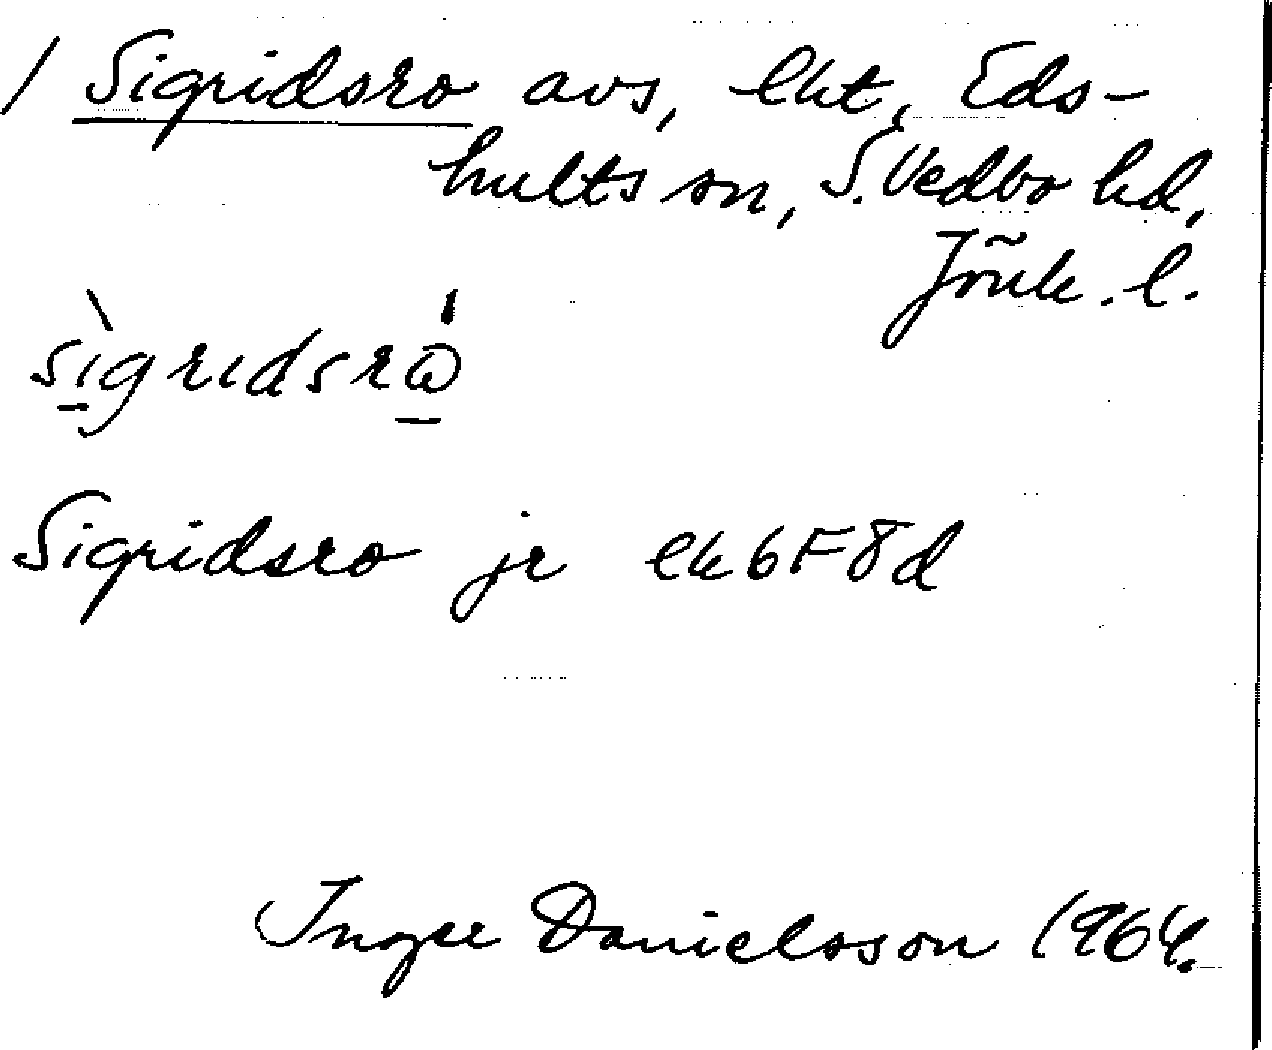 / Sigridsro avs, lht, Eds-
hults sn, S. Vedbo hd,
Jönk. l.
sìgridsrὼ
Sigridsro jr ek 6F8d
Inger Danielsson 1964.